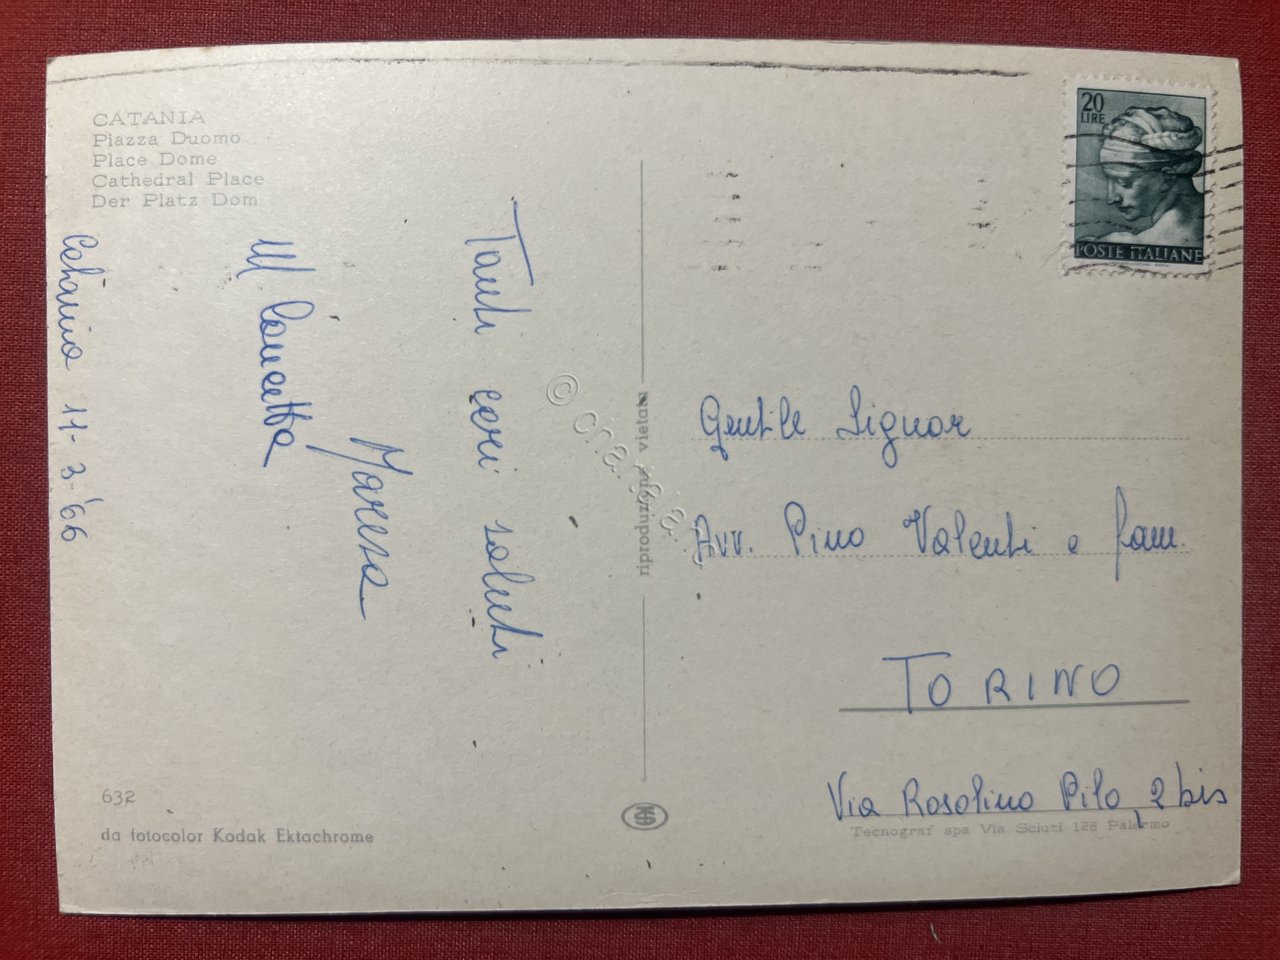 CATANIA
Piazza Duomo
Place Dome
Cathedral Place
Der Platz Dom
Catania 11-3-'66
Tanti cari saluti
Maresa
M Concetta
632
da fotocolor Kodak Ektachrome
riproduzione vietata
20
LIRE
POSTE ITALIANE
Gentile Signor
Avv. Pino Valenti e fam.
TORINO
Via Rosolino Pilo, 2 bis
Tecnograf spa Via Sciuti 128 Palermo